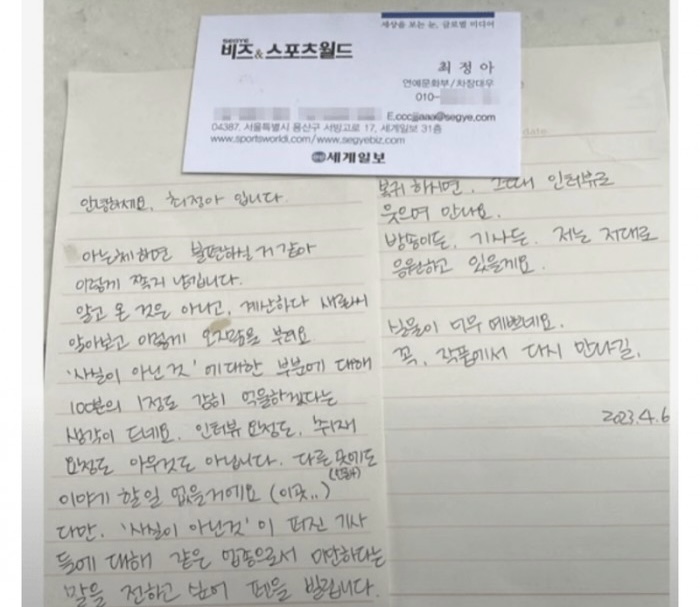 세상을 보는 눈, 글로벌 미디어
SEGYE
비즈&스포츠월드
최 정 아
연예문화부/차장대우
010-
E.cccjjaaa@segye.com
04387, 서울특별시 용산구 서빙고로 17, 세계일보 31층
www.sportsworldi.com/www.segyebiz.com
세계일보
안녕하세요. 최정아 입니다.
아는체 하면 불편하실 거 같아
이렇게 쪽지 남깁니다.
알고 온 것은 아니고, 계산하다 새로써
알아보고 이렇게 오지랖을 부려요
'사실이 아닌 것' 에 대한 부분에 대해
100분의 1정도 감히 억울하겠다는
생각이 드네요. 인터뷰 요청도, 취재
요청도 아무것도 아닙니다. 다른 곳에도
이야기 할 일 없을거에요 (이곳..)
다만. '사실이 아닌것' 이 퍼진 기사
들에 대해 같은 업종으로서 미안하다는
말을 전하고 싶어 펜을 빌립니다.
date
복귀 하시면. 그때 인터뷰로
웃으며 만나요.
방송이든. 기사든. 저는 저대로
응원하고 있을게요.
실물이 너무 예쁘네요.
꼭, 작품에서 다시 만나길,
2023.4.6